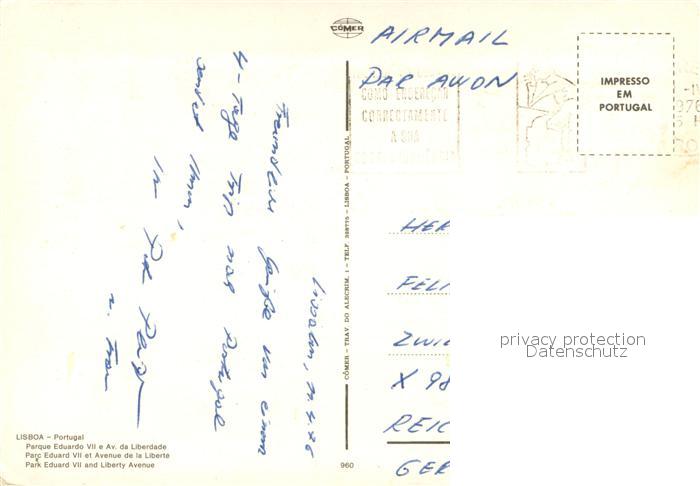 CÓMER
AIRMAIL
PAR AVION
COMO ENDEREÇAR
CORRECTAMENTE
A SUA
IMPRESSO
EM
PORTUGAL
Lissabon, 11.4.76
Freundliche Grüße von einem
4-Tage Trip nach Portugal
sendet Ihnen,
CÓMER – TRAV. DO ALECRIM, 1 – TELF. 328775 – LISBOA – PORTUGAL
HER
FELI
ZWIC
X 98
REIC
GER
privacy protection
Datenschutz
LISBOA – Portugal
Parque Eduardo VII e Av. da Liberdade
Parc Eduard VII et Avenue de la Liberté
Park Eduard VII and Liberty Avenue
960